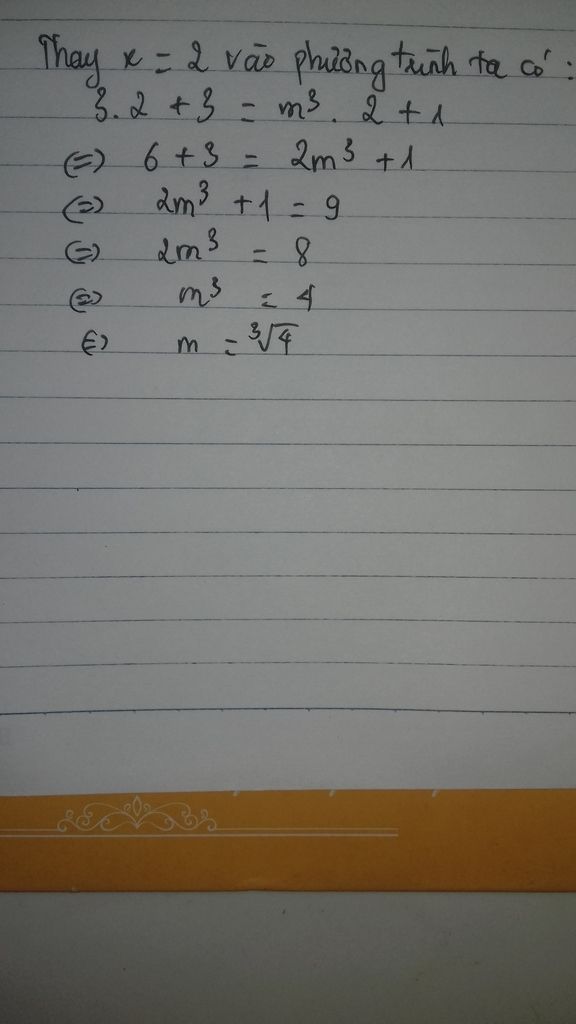 Thay x = 2 vào phương trình ta có :
3. 2 + 3 = m³. 2 + 1
(=) 6 + 3 = 2m³ + 1
(=) 2m³ + 1 = 9
(=) 2m³ = 8
(=) m³ = 4
(=) m = ³√4